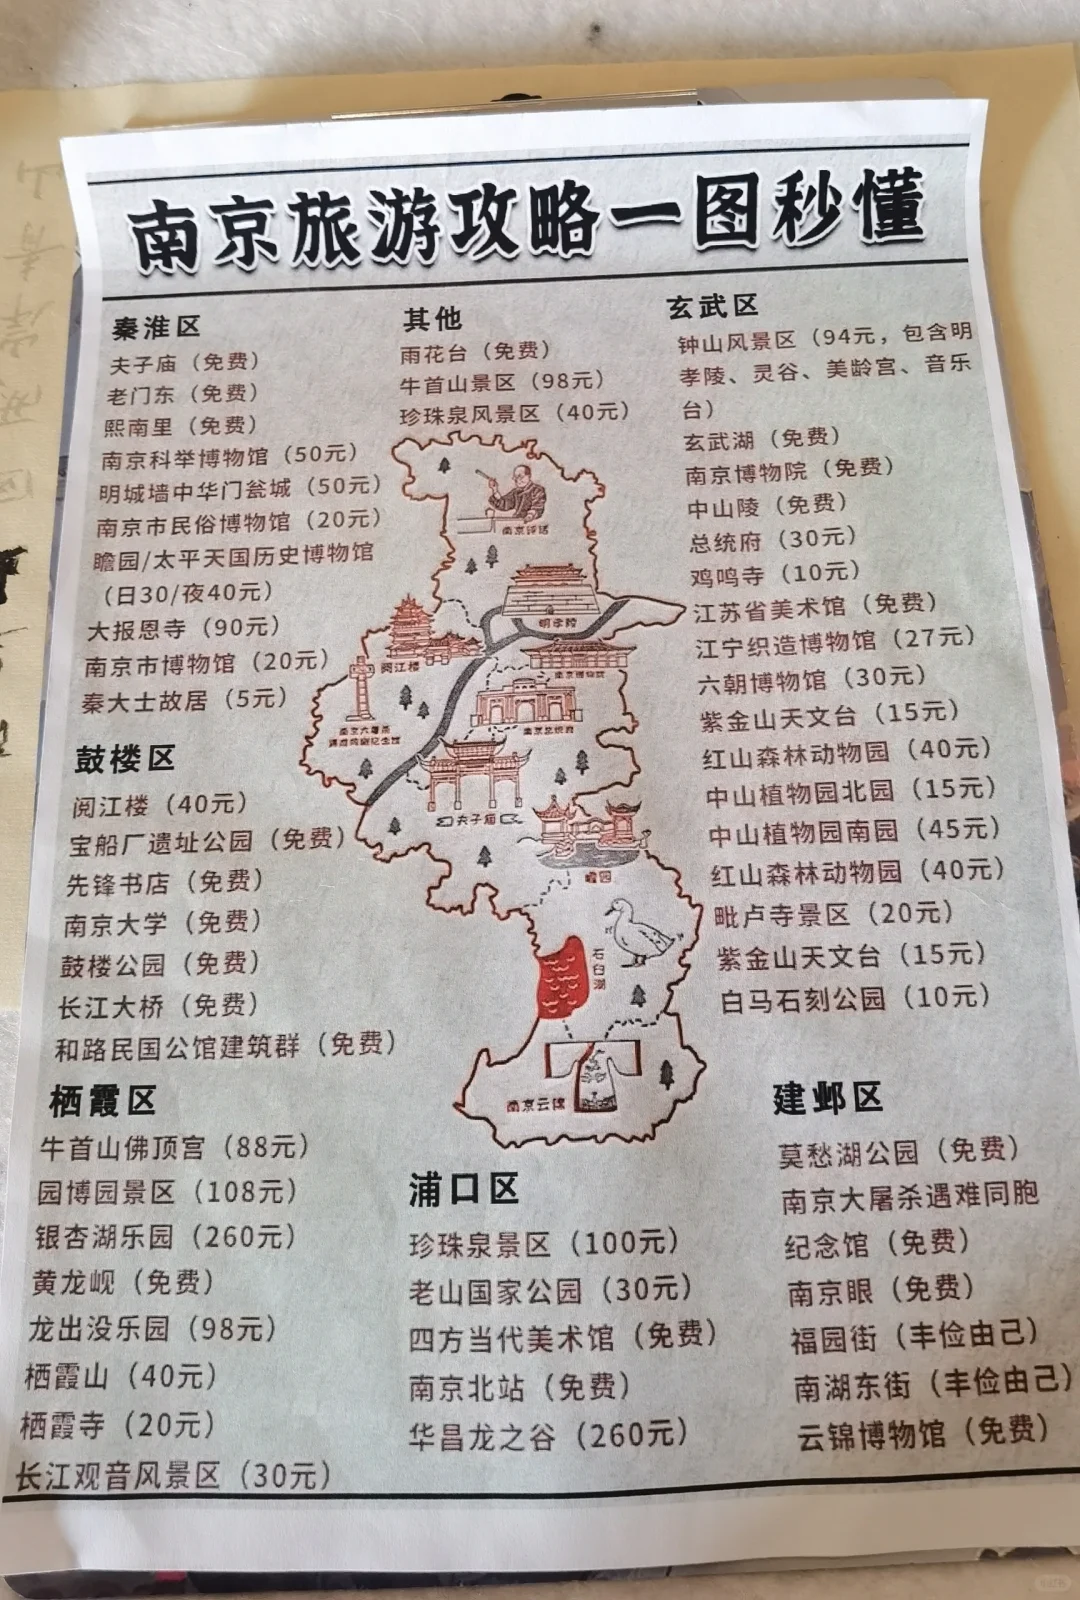 南京旅游攻略一图秒懂
秦淮区
夫子庙（免费）
老门东（免费）
熙南里（免费）
南京科举博物馆（50元）
明城墙中华门瓮城（50元）
南京市民俗博物馆（20元）
瞻园/太平天国历史博物馆
（日30/夜40元）
大报恩寺（90元）
南京市博物馆（20元）
秦大士故居（5元）
鼓楼区
阅江楼（40元）
宝船厂遗址公园（免费）
先锋书店（免费）
南京大学（免费）
鼓楼公园（免费）
长江大桥（免费）
和路民国公馆建筑群（免费）
栖霞区
牛首山佛顶宫（88元）
园博园景区（108元）
银杏湖乐园（260元）
黄龙岘（免费）
龙出没乐园（98元）
栖霞山（40元）
栖霞寺（20元）
长江观音风景区（30元）
其他
雨花台（免费）
牛首山景区（98元）
珍珠泉风景区（40元）
南京评话
明孝陵
阅江楼
南京博物院
南京总统府
夫子庙
瞻园
石臼湖
南京云锦
浦口区
珍珠泉景区（100元）
老山国家公园（30元）
四方当代美术馆（免费）
南京北站（免费）
华昌龙之谷（260元）
玄武区
钟山风景区（94元，包含明
孝陵、灵谷、美龄宫、音乐
台）
玄武湖（免费）
南京博物院（免费）
中山陵（免费）
总统府（30元）
鸡鸣寺（10元）
江苏省美术馆（免费）
江宁织造博物馆（27元）
六朝博物馆（30元）
紫金山天文台（15元）
红山森林动物园（40元）
中山植物园北园（15元）
中山植物园南园（45元）
红山森林动物园（40元）
毗卢寺景区（20元）
紫金山天文台（15元）
白马石刻公园（10元）
建邺区
莫愁湖公园（免费）
南京大屠杀遇难同胞
纪念馆（免费）
南京眼（免费）
福园街（丰俭由己）
南湖东街（丰俭由己）
云锦博物馆（免费）